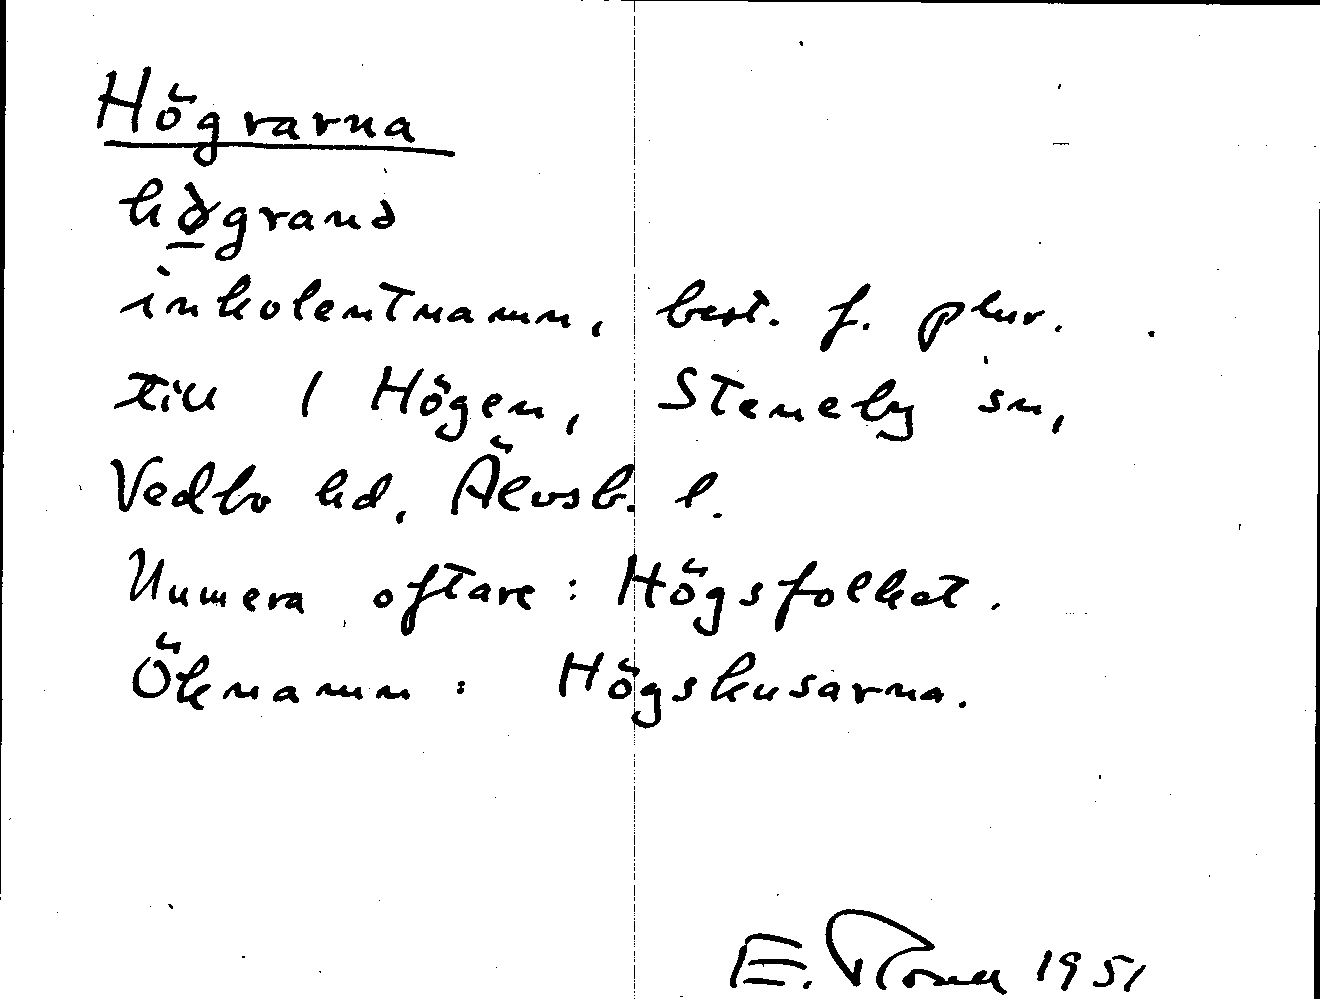 Högrarna
högranə
inkolentnamn, best. f. plur.
till 1 Högen, Steneby sn,
Vedbo hd, Älvsb. l.
Numera oftare: Högsfolket.
Öknamn: Högskusarna.
E. 1951